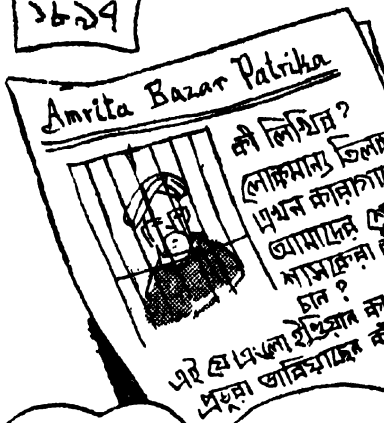 ১৮৯৭
Amrita Bazar Patrika
কী লিখিব?
লোকমান্য তিলক
এখন কারাগা
আমাদের
শাসকেরা
চান?
এই যে এলো ইন্ডিয়ান
প্রভুরা ভাবিয়াছেন